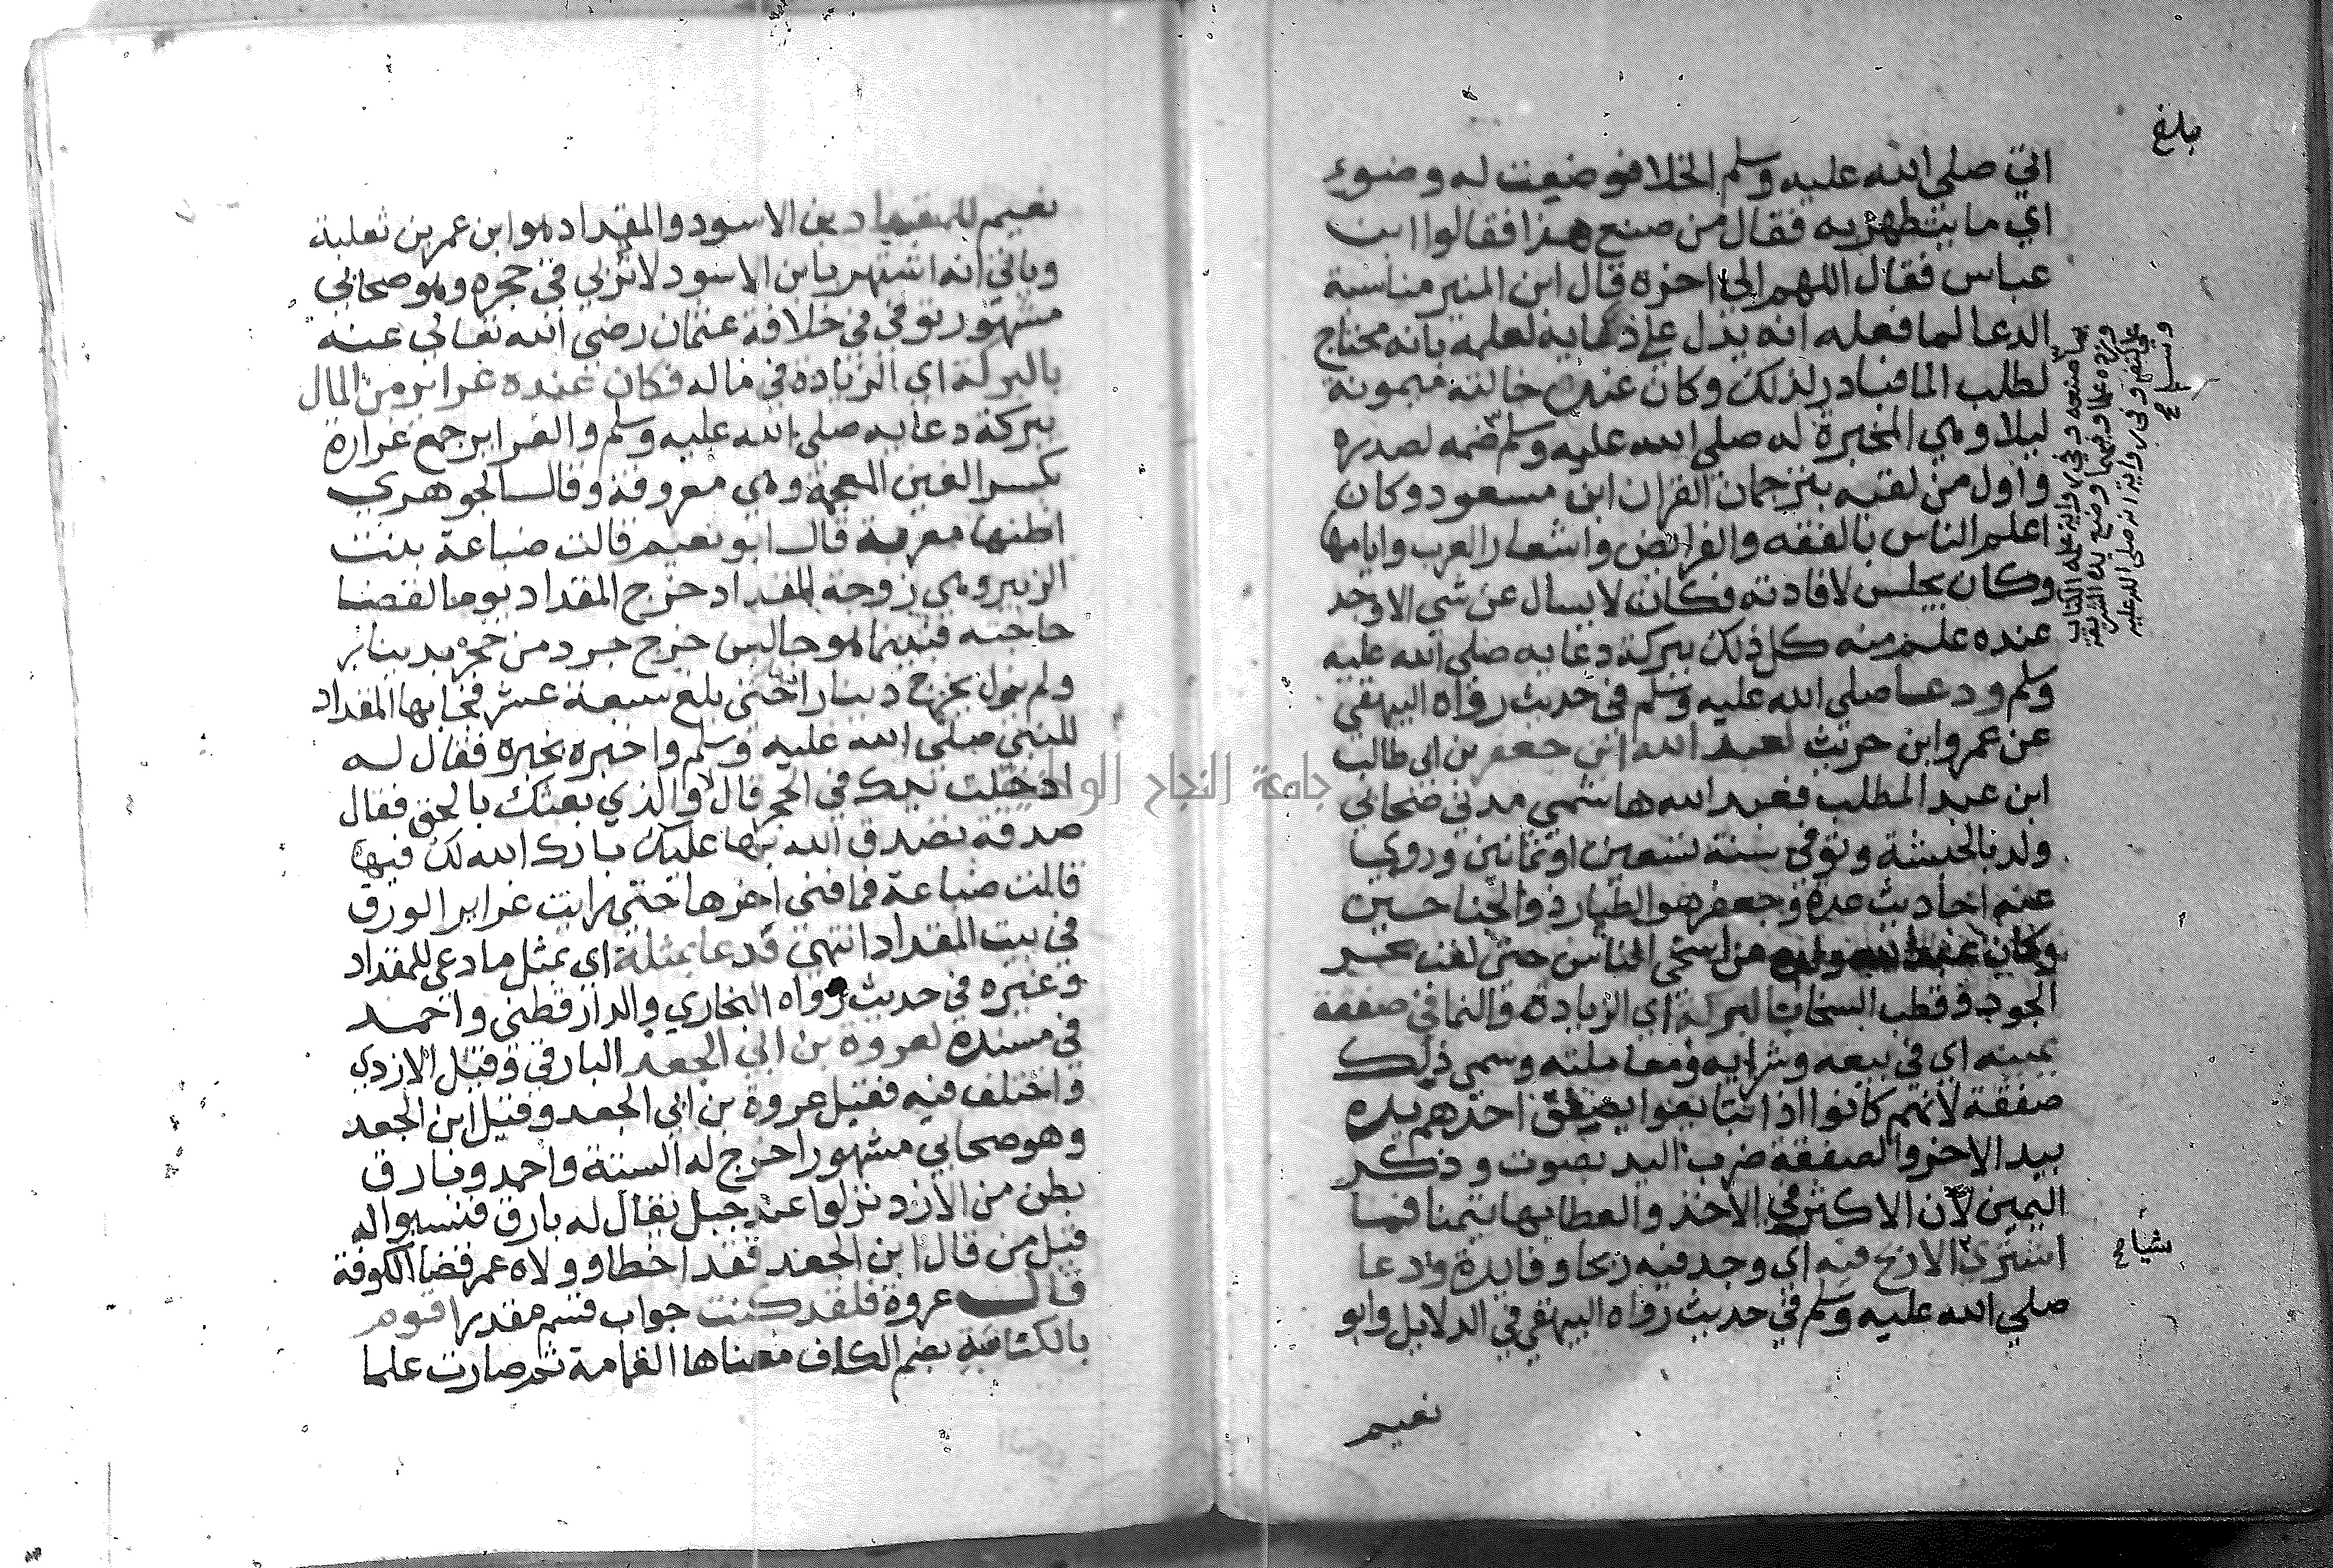 بلغ
اتي صلى الله عليه وسلم الخلا فوضعت له وضوء
اي ما يتطهر به فقال من صنع هذا فقالوا ابن
عباس فقال اللهم الى اخره قال ابن المنير مناسبة
الدعا لما فعله انه يدل على ذكايه لعلمه بانه محتاج
لطلب الما فبادر لذلك وكان عنده خالته ميمونة
ليلا وهي المخبرة له صلى الله عليه وسلم ضمه لصدره
واول من لقبه بترجمان القران ابن مسعود وكان
اعلم الناس بالفقه والفرائض واشعار العرب وايامها
وكان يجلس لافادته فكان لا يسال عن شي الا وجد
عنده علم منه كل ذلك ببركة دعايه صلى الله عليه
وسلم ودعا صلى الله عليه وسلم في حديث رواه البيهقي
عن عمرو ابن حريث لعبد الله ابن جعفر بن ابي طالب
ابن عبد المطلب فعبد الله هاشمي مدني صحابي
ولد بالحبشة وتوفي سنة تسعين او ثمانين وروي
عنه احاديث عدة وجعفر هو الطيار ذو الجناحين
وكان من اسخى الناس حتى لقب بحر
الجود وقطب السخا بالبركة اي الزيادة والنما في صفقة
يمينه اي في بيعه وشرايه ومعاملته وسمى ذلك
صفقة لانهم كانوا اذا تبايعوا يصفق احدهم يده
بيد الاخر والصفقة ضرب اليد بصوت وذكر
اليمين لان الاكثر في الاخذ والعطا بها تيمنا فما
اشترى الا ربح فيه اي وجد فيه ربحا وفايدة ودعا
صلى الله عليه وسلم في حديث رواه البيهقي في الدلايل وابو
نعيم
نعيم للمقداد بن الاسود والمقداد هو ابن عمر بن ثعلبة
وياتي انه اشتهر بابن الاسود لانه ربي في حجره وهو صحابي
مشهور توفي في خلافة عثمان رضي الله تعالى عنه
بالبركة اي الزيادة في ماله فكان عنده غراير من المال
ببركة دعايه صلى الله عليه وسلم والغراير جمع غرارة
بكسر الغين المعجمة وهي معروفة وقال الجوهري
اظنها معربة قال ابو نعيم قالت ضباعة بنت
الزبير وهي زوجة المقداد خرج المقداد يوما لقضا
حاجته فبينما هو جالس خرج جرد من حجره بدينار
ولم يزل يخرج دينارا حتى بلغ سبعة عشر فجا بها المقداد
للنبي صلى الله عليه وسلم واخبره بخبره فقال له
ادخلت يدك في الحجر قال لا والذي بعثك بالحق فقال
صدقة تصدق الله بها عليك بارك الله لك فيها
قالت ضباعة فما فني اخرها حتى رايت غراير الورق
في بيت المقداد انتهى ودعا بمثله اي بمثل ما دعى للمقداد
وغيره في حديث رواه البخاري والدارقطني واحمد
في مسنده لعروة بن ابي الجعد البارقي وقيل الازدي
واختلف فيه فقيل عروة بن ابي الجعد وقيل ابن الجعد
وهو صحابي مشهور اخرج له الستة واحمد وبارق
بطن من الازد نزلوا عند جبل يقال له بارق فنسبوا له
قيل من قال ابن الجعد فقد اخطا وولاه عمر قضا الكوفة
قال عروة فلقد كنت جواب قسم مقدر اقوم
بالكناسة بضم الكاف معناها القمامة ثم صارت علما
جامعة النجاح الوطنية